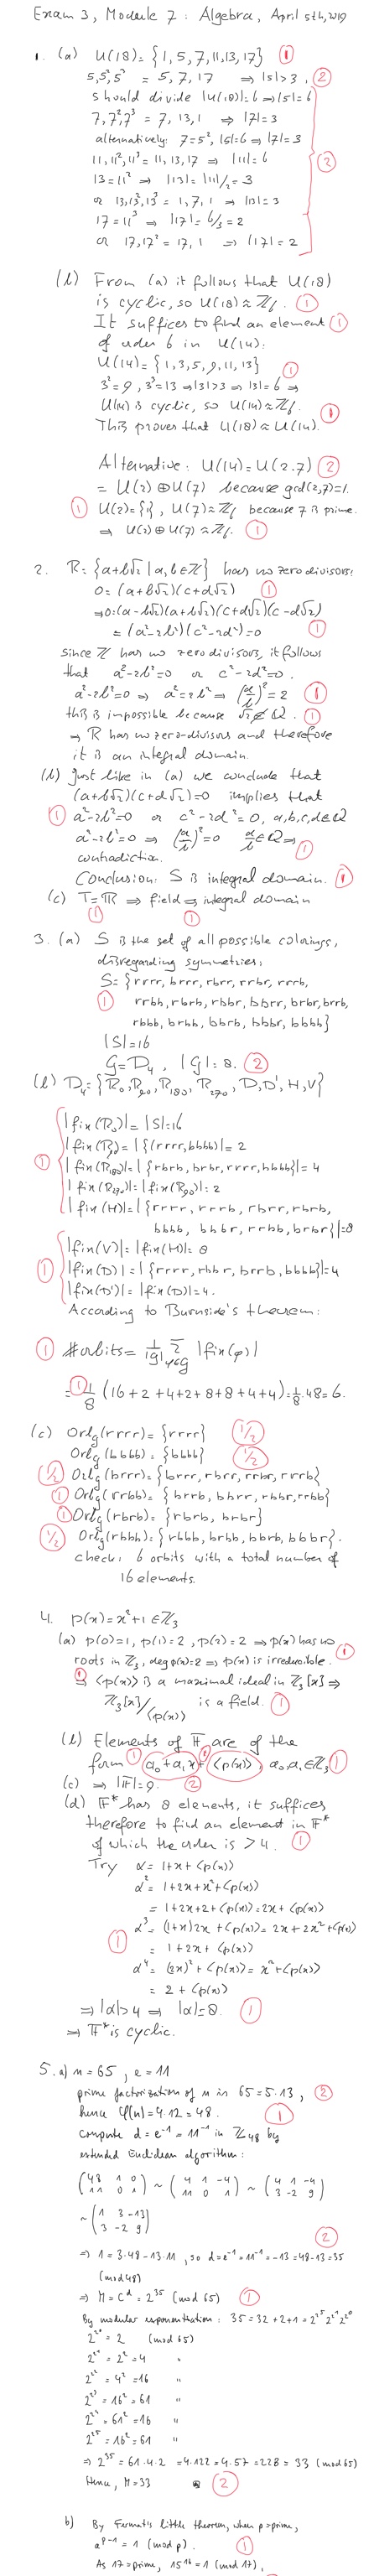 Exam 3, Module 7: Algebra, April 5th, 2019
1. (a) U(18) = {1, 5, 7, 11, 13, 17} (1)
5, 5², 5³ = 5, 7, 17 ⇒ |5| > 3, (2)
should divide |U(18)| = 6 ⇒ |5| = 6
7, 7², 7³ = 7, 13, 1 ⇒ |7| = 3
alternatively: 7 = 5², |5| = 6 ⇒ |7| = 3
11, 11², 11³ = 11, 13, 17 ⇒ |11| = 6 (2)
13 = 11² ⇒ |13| = |11|/2 = 3
or 13, 13², 13³ = 1, 7, 1 ⇒ |13| = 3
17 = 11³ ⇒ |17| = 6/3 = 2
or 17, 17² = 17, 1 ⇒ |17| = 2
(b) From (a) it follows that U(18)
is cyclic, so U(18) ≈ Z₆. (1)
It suffices to find an element (1)
of order 6 in U(14):
U(14) = {1, 3, 5, 9, 11, 13} (1)
3² = 9, 3³ = 13 ⇒ |3| > 3 ⇒ |3| = 6 ⇒
U(14) is cyclic, so U(14) ≈ Z₆. (1)
This proves that U(18) ≈ U(14).
Alternative: U(14) = U(2·7) (2)
= U(2) ⊕ U(7) because gcd(2,7) = 1.
(1) U(2) = {1}, U(7) ≈ Z₆ because 7 is prime.
⇒ U(2) ⊕ U(7) ≈ Z₆. (1)
2. R = {a+b√2 | a, b ∈ Z} has no zero divisors:
0 = (a+b√2)(c+d√2) (1)
⇒ 0 = (a-b√2)(a+b√2)(c+d√2)(c-d√2)
= (a²-2b²)(c²-2d²) = 0 (1)
since Z has no zero divisors, it follows
that a²-2b² = 0 or c²-2d² = 0.
a²-2b² = 0 ⇒ a² = 2b² ⇒ (a/b)² = 2 (1)
this is impossible because √2 ∉ Q. (1)
⇒ R has no zero-divisors and therefore
it is an integral domain.
(b) Just like in (a) we conclude that
(a+b√2)(c+d√2) = 0 implies that
(1) a²-2b² = 0 or c²-2d² = 0, a, b, c, d ∈ Q
a²-2b² = 0 ⇒ (a/b)² = 0 a/b ∈ Q ⇒ (1)
contradiction.
Conclusion: S is integral domain. (1)
(c) T = R ⇒ field ⇒ integral domain
(1) (1)
3. (a) S is the set of all possible colorings,
disregarding symmetries,
S = {rrrr, brrr, rbrr, rrbr, rrrb,
(1) rrbb, rbrb, rbbr, bbrr, brbr, brrb,
rbbb, brbb, bbrb, bbbr, bbbb}
|S| = 16
G = D₄, |G| = 8. (2)
(b) D₄ = {R₀, R₉₀, R₁₈₀, R₂₇₀, D, D', H, V}
|fix(R₀)| = |S| = 16
|fix(R₉₀)| = |{rrrr, bbbb}| = 2
(1) |fix(R₁₈₀)| = |{rbrb, brbr, rrrr, bbbb}| = 4
|fix(R₂₇₀)| = |fix(R₉₀)| = 2
|fix(H)| = |{rrrr, rrrb, rbrr, rbrb,
bbbb, bbbr, rrbb, brbr}| = 8
|fix(V)| = |fix(H)| = 8
(1) |fix(D)| = |{rrrr, rbbr, brrb, bbbb}| = 4
|fix(D')| = |fix(D)| = 4.
According to Burnside's theorem:
(1) #orbits = 1/|G| Σ φ∈G |fix(φ)|
(1) = 1/8 (16+2+4+2+8+8+4+4) = 1/8·48 = 6.
(c) Orb_G(rrrr) = {rrrr} (1/2)
Orb_G(bbbb) = {bbbb} (1/2)
(1/2) Orb_G(brrr) = {brrr, rbrr, rrbr, rrrb}
(1) Orb_G(rrbb) = {brrb, bbrr, rbbr, rrbb}
(1) Orb_G(rbrb) = {rbrb, brbr}
(1/2) Orb_G(rbbb) = {rbbb, brbb, bbrb, bbbr}.
check: 6 orbits with a total number of
16 elements.
4. p(x) = x²+1 ∈ Z₃
(a) p(0) = 1, p(1) = 2, p(2) = 2 ⇒ p(x) has no (1)
roots in Z₃, deg p(x) = 2 ⇒ p(x) is irreducible.
(1) ⇒ ⟨p(x)⟩ is a maximal ideal in Z₃[x] ⇒
Z₃[x]/⟨p(x)⟩ is a field. (1)
(b) Elements of F are of the
form (1) a₀+a₁x (1) + ⟨p(x)⟩, a₀, a₁ ∈ Z₃ (1)
(c) ⇒ |F| = 9. (2)
(d) F* has 8 elements, it suffices
therefore to find an element in F*
of which the order is > 4. (1)
Try α = 1+x+⟨p(x)⟩
α² = 1+2x+x²+⟨p(x)⟩
= 1+2x+2+⟨p(x)⟩ = 2x+⟨p(x)⟩
(1) α³ = (1+x)2x+⟨p(x)⟩ = 2x+2x²+⟨p(x)⟩
= 1+2x+⟨p(x)⟩
α⁴ = (2x)²+⟨p(x)⟩ = x²+⟨p(x)⟩
= 2+⟨p(x)⟩
⇒ |α| > 4 ⇒ |α| = 8. (1)
⇒ F* is cyclic.
5. a) n = 65, e = 11
prime factorization of n is 65 = 5·13, (2)
hence φ(n) = 4·12 = 48. (1)
Compute d = e⁻¹ = 11⁻¹ in Z₄₈ by
extended Euclidean algorithm:
(48 1 0 / 11 0 1) ~ (4 1 -4 / 11 0 1) ~ (4 1 -4 / 3 -2 9)
~ (1 3 -13 / 3 -2 9)
(2)
⇒ 1 = 3·48 - 13·11, so d = e⁻¹ = 11⁻¹ = -13 = 48-13 = 35
(mod 48)
⇒ M = C^d = 2³⁵ (mod 65) (1)
By modular exponentiation: 35 = 32+2+1 = 2^2⁵ 2^2¹ 2^2⁰
2^2⁰ = 2 (mod 65)
2^2¹ = 2² = 4 "
2^2² = 4² = 16 "
2^2³ = 16² = 61 "
2^2⁴ = 61² = 16 "
2^2⁵ = 16² = 61 "
⇒ 2³⁵ = 61·4·2 = 4·122 = 4·57 = 228 = 33 (mod 65)
Hence, M = 33 (2)
b) By Fermat's little theorem, when p = prime,
a^(p-1) = 1 (mod p). (1)
As 17 = prime, 15¹⁶ = 1 (mod 17),